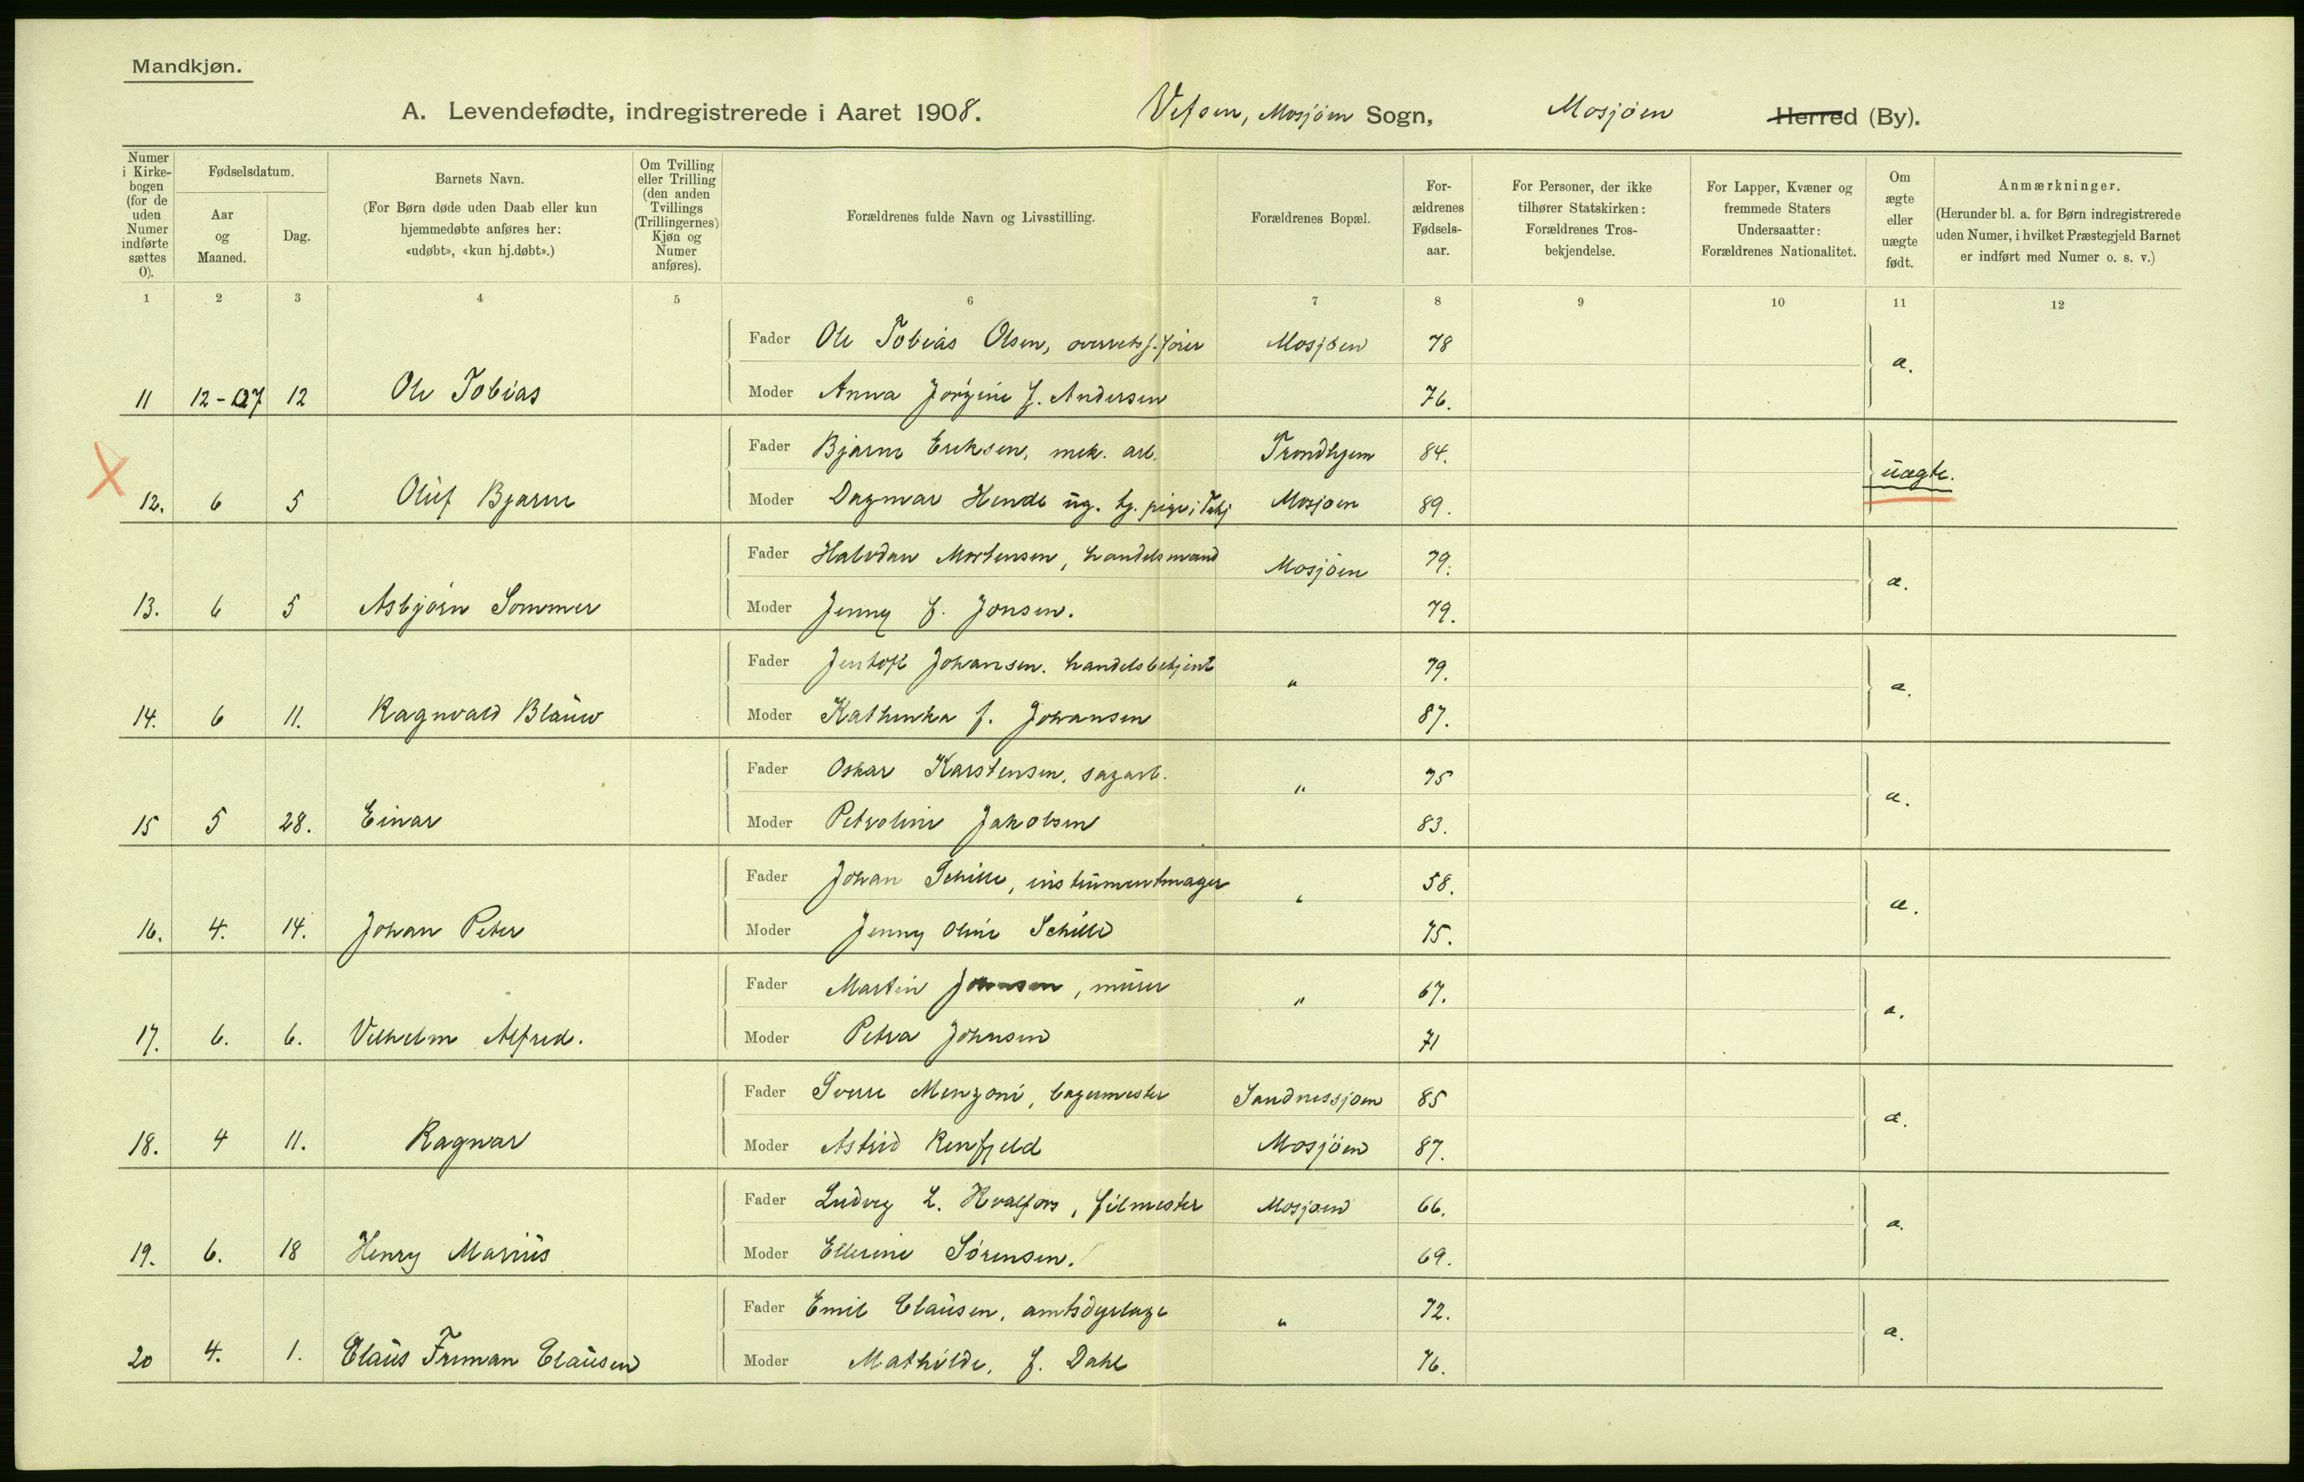 Mandkjøn.
A. Levendefødte, indregistrerede i Aaret 1908. Vefsen, Mosjøen Sogn, Mosjøen Herred (By).
Numer i Kirke- bogen (for de uden Numer indførte sættes 0).
Fødselsdatum.
Aar og Maaned.
Dag.
Barnets Navn.
(For Børn døde uden Daab eller kun hjemmedøbte anføres her: «udøbt», «kun hj.døbt».)
Om Tvilling eller Trilling (den anden Tvillings (Trillingernes) Kjøn og Numer anføres).
Forældrenes fulde Navn og Livsstilling.
Forældrenes Bopæl.
For- ældrenes Fødsels- aar.
For Personer, der ikke tilhører Statskirken: Forældrenes Tros- bekjendelse.
For Lapper, Kvæner og fremmede Staters Undersaatter: Forældrenes Nationalitet.
Om ægte eller uægte født.
Anmærkninger.
(Herunder bl. a. for Børn indregistrerede uden Numer, i hvilket Præstegjeld Barnet er indført med Numer o. s. v.)
1 2 3 4 5 6 7 8 9 10 11 12
Fader Ole Tobias Olsen, overretss.fører Mosjøen 78
11 12-07 12 Ole Tobias Moder Anna Jørgine f. Andersen 76. a.
Fader Bjarne Eriksen, mek. arb. Trondhjem 84.
X 12. 6 5 Oluf Bjarne Moder Dagmar Hende ug. tj. pige i Mosjøen 89. uægte.
Fader Halvdan Mortensen, handelsmand Mosjøen 79.
13. 6 5 Asbjørn Sommer Moder Jenny f. Jonsen. 79. a.
Fader Jentoft Johansen. handelsbetjent " 79.
14. 6 11. Ragnvald Blauw Moder Kathinka f. Johansen 87. a.
Fader Oskar Karstensen, sagarb. " 75
15 5 28. Einar Moder Petroline Jakobsen 83. a.
Fader Johan Schille, instrumentmager " 58.
16. 4. 14. Johan Peter Moder Jenny Oline Schille 75. a.
Fader Martin Johnsen, murer " 67.
17. 6. 6. Vilhelm Alfred. Moder Petra Johnsen 71 a.
Fader Sverre Menzoni, bagermester Sandnessjøen 85
18. 4 11. Ragnar Moder Astrid Renfjeld Mosjøen 87. a.
Fader Ludvig L. Kvalfors, filmester Mosjøen 66.
19. 6. 18 Henry Marius Moder Ellerine Sørensen. 69. a.
Fader Emil Clausen, amtsdyrlæge " 72.
20 4. 1. Claus Freman Clausen Moder Mathilde, f. Dahl 76. a.